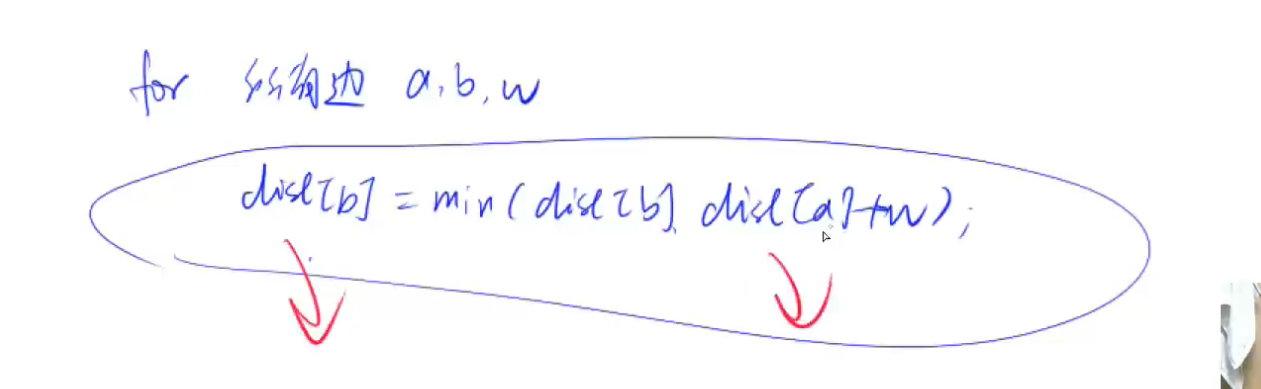 for 所有边 a,b,w
dist[b] = min(dist[b], dist[a]+w);